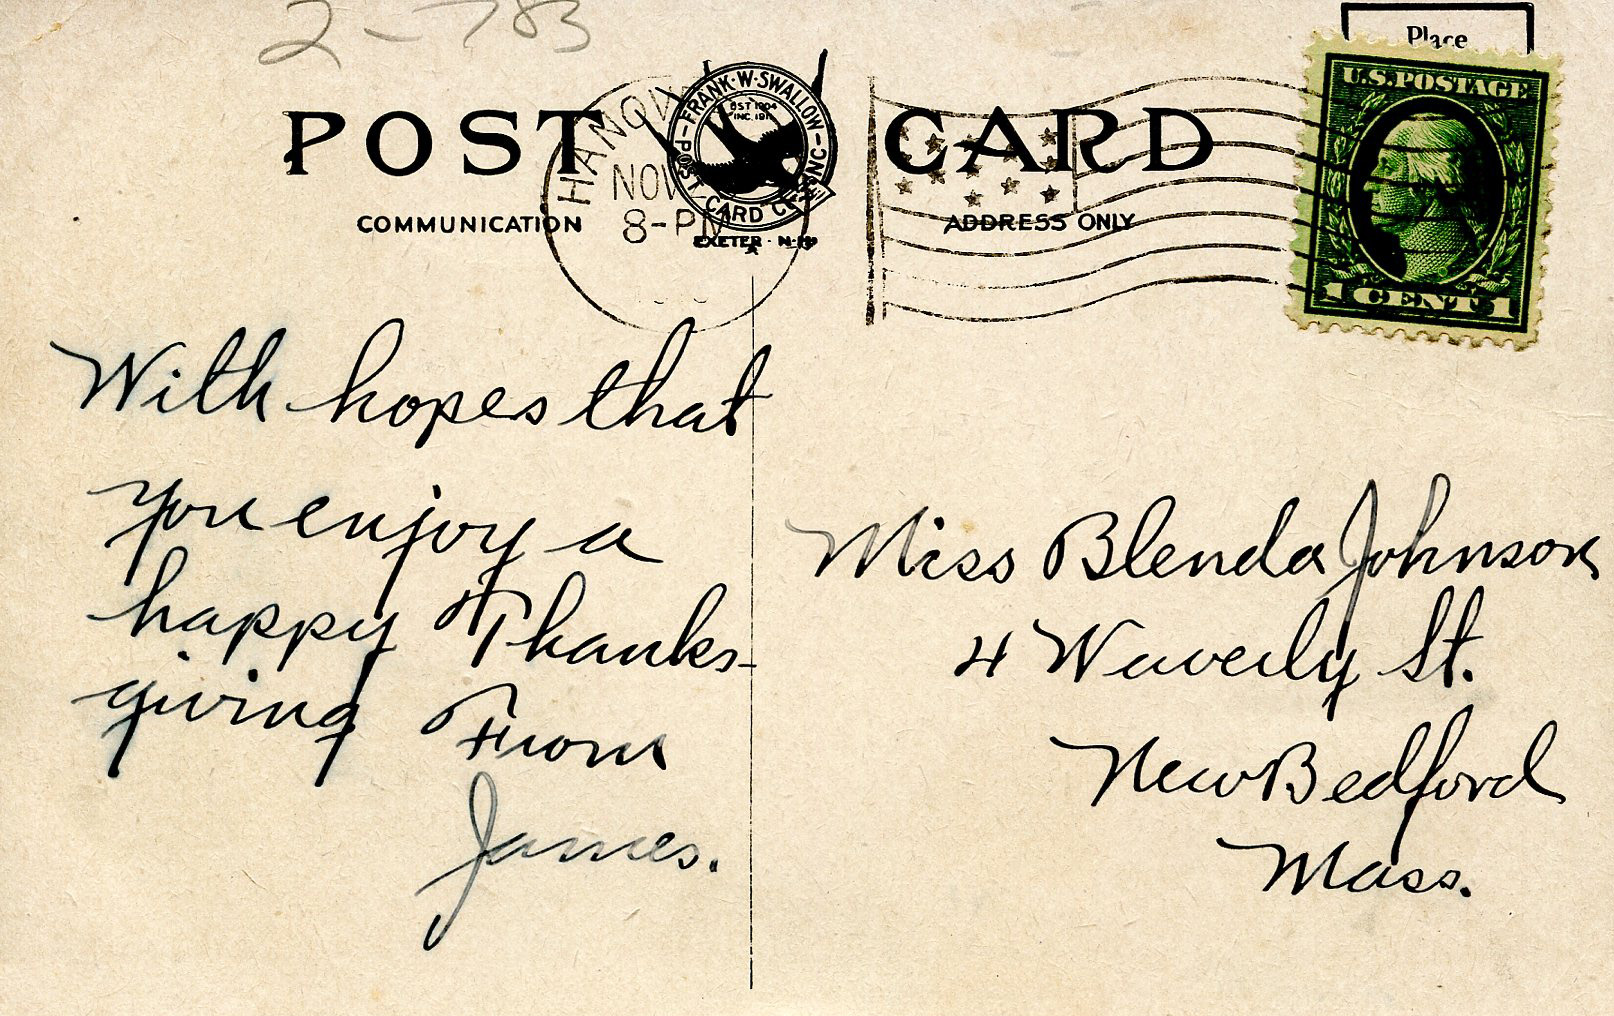 2-783
Place
U.S. POSTAGE
1 CENT 1
POST CARD
FRANK·W·SWALLOW
EST 1904
POST CARD INC
EXETER · N·H
HANOV
NOV
8-PM
COMMUNICATION
ADDRESS ONLY
With hopes that
you enjoy a
happy Thanks-
giving From
James.
Miss Blenda Johnson
4 Waverly St.
New Bedford
Mass.